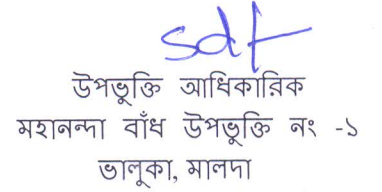 sdt
উপভূক্তি আধিকারিক
মহানন্দা বাঁধ উপভূক্তি নং -১
ভালুকা, মালদা